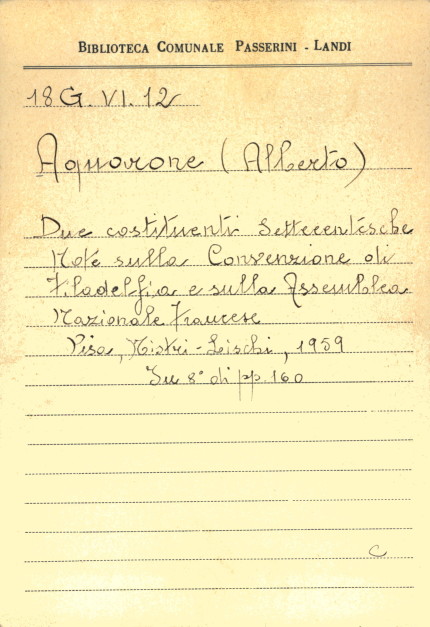 BIBLIOTECA COMUNALE PASSERINI - LANDI
18 G. VI. 12
Aquarone (Alberto)
Due costituenti settecentesche
Note sulla Convenzione di
Filadelfia e sulla Assemblea
Nazionale francese
Pisa, Nistri-Lischi, 1959
In 8° di pp. 160
C